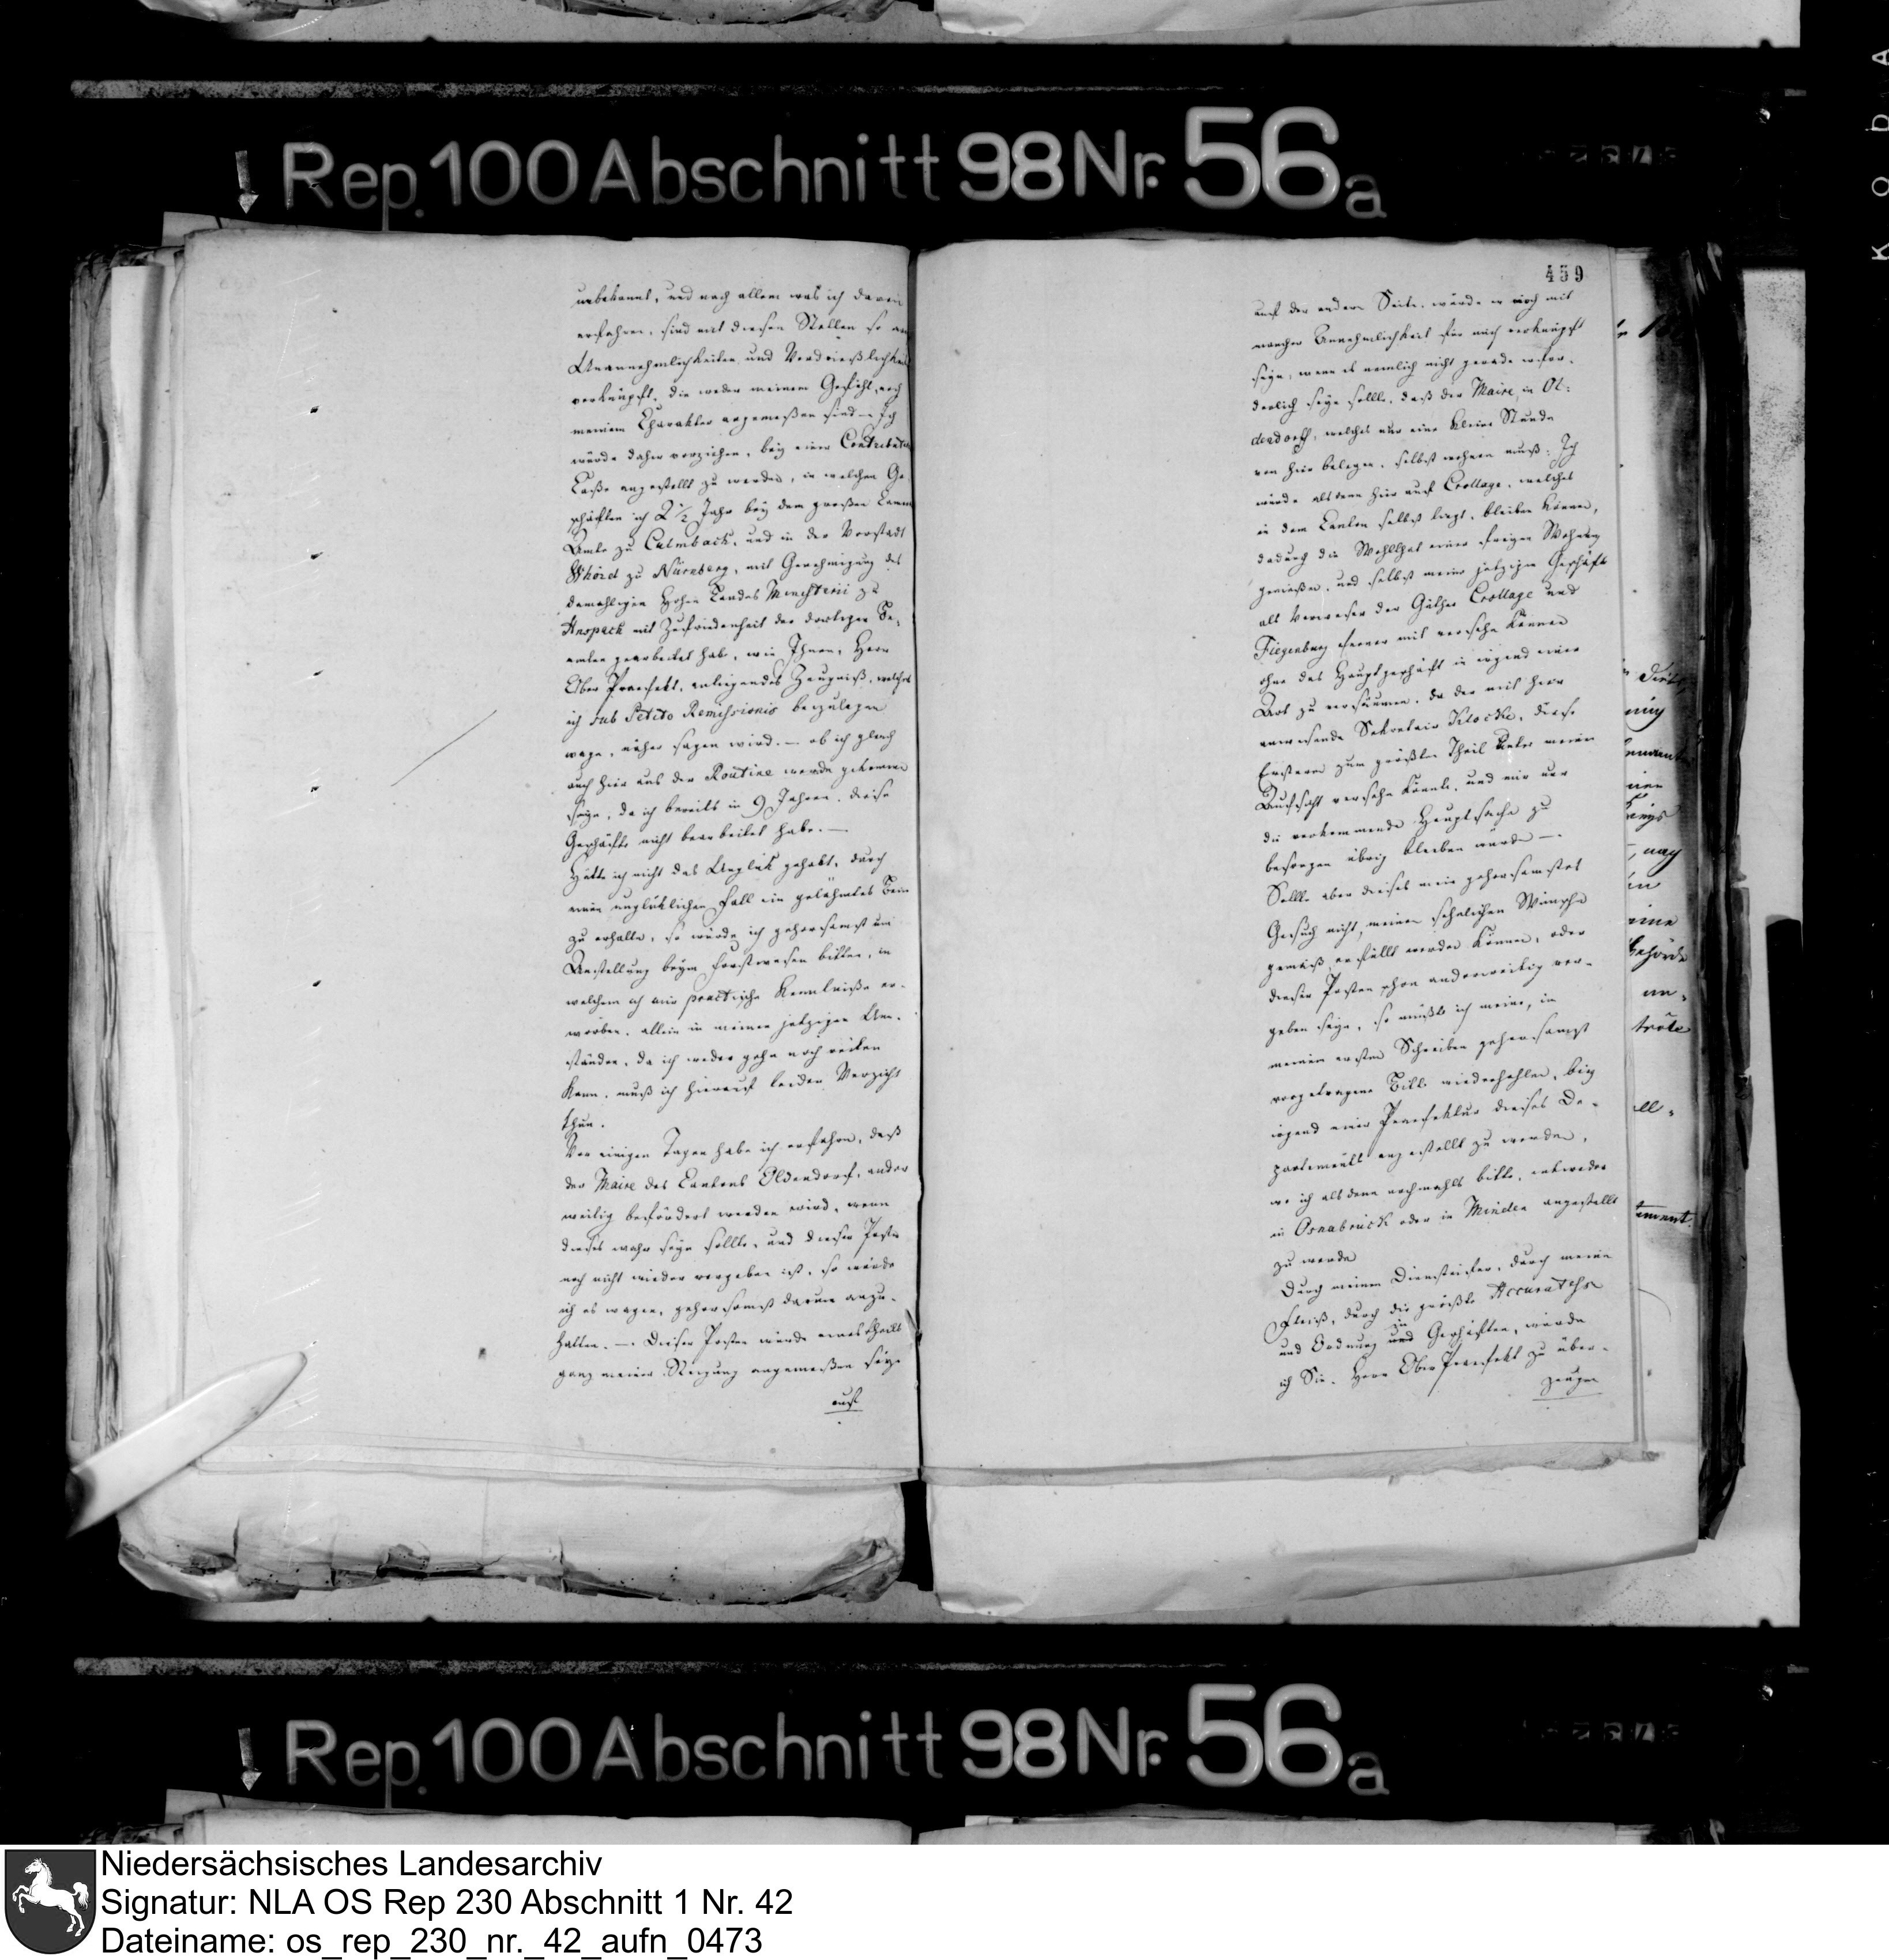 Rep. 100 Abschnitt 98 Nr. 56a
unbekannt, und nach allem was ich davon
erfahren, sind mit diesen Stellen so
Unannehmlichkeiten und Verdrießlichkeit
verknüpft, die weder meinem Gefühl, noch
meinem Charakter angemeßen sind. Ich
würde daher vorziehen, bey einer Contributions
Caße angestellt zu werden, in welchen Ge
schäften ich 2 1/2 Jahr bey dem großen
Amte zu Culmbach, und in der Vorstadt
Whörd zu Nürnberg, mit Genehmigung des
damahligen Hohen Landes Ministerii zu
Anspach mit Zufriedenheit der dortigen Be-
amten gearbeitet habe, wie Ihnen, Herr
Ober Praefekt, anliegendes Zeugniß, welches
ich sub Petito Remissionis beyzulegen
wage, näher sagen wird. — ob ich gleich
auch hier aus der Routine werde gekommen
seyn, da ich bereits in 9 Jahren diese
Geschäfte nicht bearbeitet habe. —
Hätte ich nicht das Unglük gehabt, durch
einen unglüklichen Fall ein gelähmtes Bein
zu erhalten, so würde ich gehorsamst um
Anstellung beym Forstwesen bitten, in
welchem ich mir practische Kenntniße er-
worben, allein in meinen jetzigen Um-
ständen, da ich weder gehn noch reiten
kann, muß ich hierauf leider Verzicht
thun.
Vor einigen Tagen habe ich erfahren, daß
der Maire des Cantons Oldendorf, ander
weitig befördert werden wird, wenn
dieses wahr seyn sollte, und dieser Posten
noch nicht wieder vergeben ist, so würde
ich es wagen, gehorsamst darum anzu-
halten. — Dieser Posten würde eines theils
ganz meiner Neigung angemeßen seyn
auf
459
auf der andern Seite, würde er noch mit
mancher Annehmlichkeit für mich verknüpft
seyn, wenn es nemlich nicht gerade erfor-
derlich seyn sollte, daß der Maire, in Ol-
dendorf, welches nur eine kleine Stunde
von hier belegen, selbst wohnen muß: Ich
würde alsdenn hier auf Crollage, welches
in dem Canton selbst liegt, bleiben können,
dadurch die Wohlthat einer freyen Wohnung
genießen, und selbst meine jetzigen Geschäfte
als Verweser der Güther Crollage und
Fiegenburg ferner mit versehn können
ohne das Hauptgeschäft in irgend einer
Art zu versäumen, da der mit hier
anwesende Sekretair Klocke, diese
Ersteren zum größten Theil unter meiner
Aufsicht versehn könnte, und mir nur
die vorkommende Hauptsache zu
besorgen übrig bleiben würde —.
Sollte aber dieses mein gehorsamstes
Gesuch nicht, meinen sehnlichen Wünschen
gemäß erfüllt werden können, oder
dieser Posten schon anderweitig ver-
geben seyn, so müßte ich meine, in
meinem ersten Schreiben gehorsamst
vorgetragene Bitte wiederhohlen, bey
irgend einer Praefektur dieses De-
partements angestellt zu werden,
wo ich alsdenn nochmahls bitte, entweder
in Osnabrück oder in Minden angestellt
zu werden
Durch meinen Diensteifer, durch meinen
Fleiß, durch die größte Accuratesse
und Ordnung in Geschäften, werde
ich Sie, Herr Ober Praefekt zu über-
zeugen
Rep. 100 Abschnitt 98 Nr. 56a
Niedersächsisches Landesarchiv
Signatur: NLA OS Rep 230 Abschnitt 1 Nr. 42
Dateiname: os_rep_230_nr._42_aufn_0473